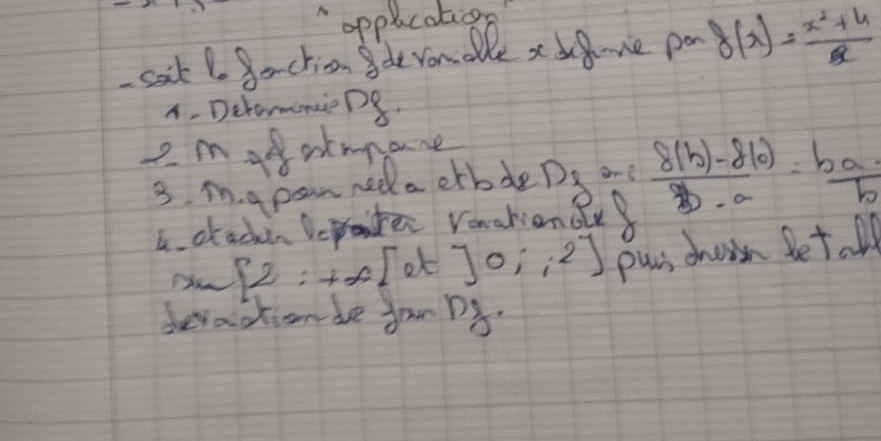 application
- soit la fonction f de variable x définie par f(x) = x² + 4 / x
1 - Determiner Df.
2 - M q f est impaire
3 - M.q pour reel a et b de Df on : f(b) - f(a) / b - a = ba
4 - etudier les variation de f
sur [2 ; +∞[ et ]0 ; ; 2] puis dresser le tabl
de variation de f sur Df.